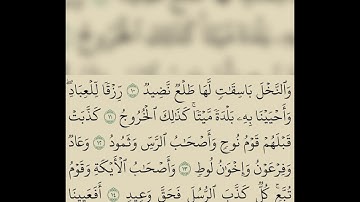 وَٱلنَّخْلَ بَاسِقَٰتٍ لَّهَا طَلْعٌ نَّضِيدٌ ١٠ رِزْقًا لِّلْعِبَادِۖ
وَأَحْيَيْنَا بِهِۦ بَلْدَةً مَّيْتًاۚ كَذَٰلِكَ ٱلْخُرُوجُ ١١ كَذَّبَتْ
قَبْلَهُمْ قَوْمُ نُوحٍ وَأَصْحَٰبُ ٱلرَّسِّ وَثَمُودُ ١٢ وَعَادٌ
وَفِرْعَوْنُ وَإِخْوَٰنُ لُوطٍ ١٣ وَأَصْحَٰبُ ٱلْأَيْكَةِ وَقَوْمُ
تُبَّعٍۚ كُلٌّ كَذَّبَ ٱلرُّسُلَ فَحَقَّ وَعِيدِ ١٤ أَفَعَيِينَا